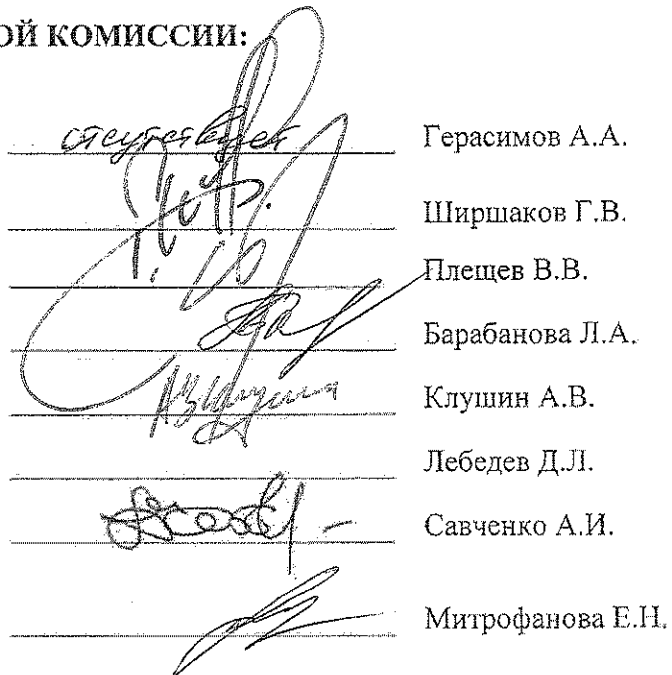 ОЙ КОМИССИИ:
отсутствует Герасимов А.А.
Ширшаков Г.В.
Плещев В.В.
Барабанова Л.А.
Клушин А.В.
Лебедев Д.Л.
Савченко А.И.
Митрофанова Е.Н.